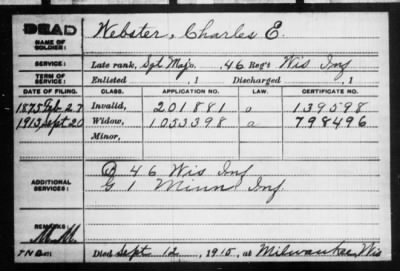 DEAD
NAME OF SOLDIER: Webster, Charles E.
SERVICE: Late rank, Sgt Majo. , 46 Reg't Wis Inf
TERM OF SERVICE: Enlisted , 1 Discharged , 1
DATE OF FILING. CLASS. APPLICATION NO. LAW. CERTIFICATE NO.
1875 Feb 27 Invalid, 201881 o 139598
1915, Sept 20 Widow, 1053398 a 798496
Minor,
ADDITIONAL SERVICES: D 46 Wis Inf
G 1 Minn Inf.
REMARKS:
Died Sept 12, 1915, at Milwaukee, Wis